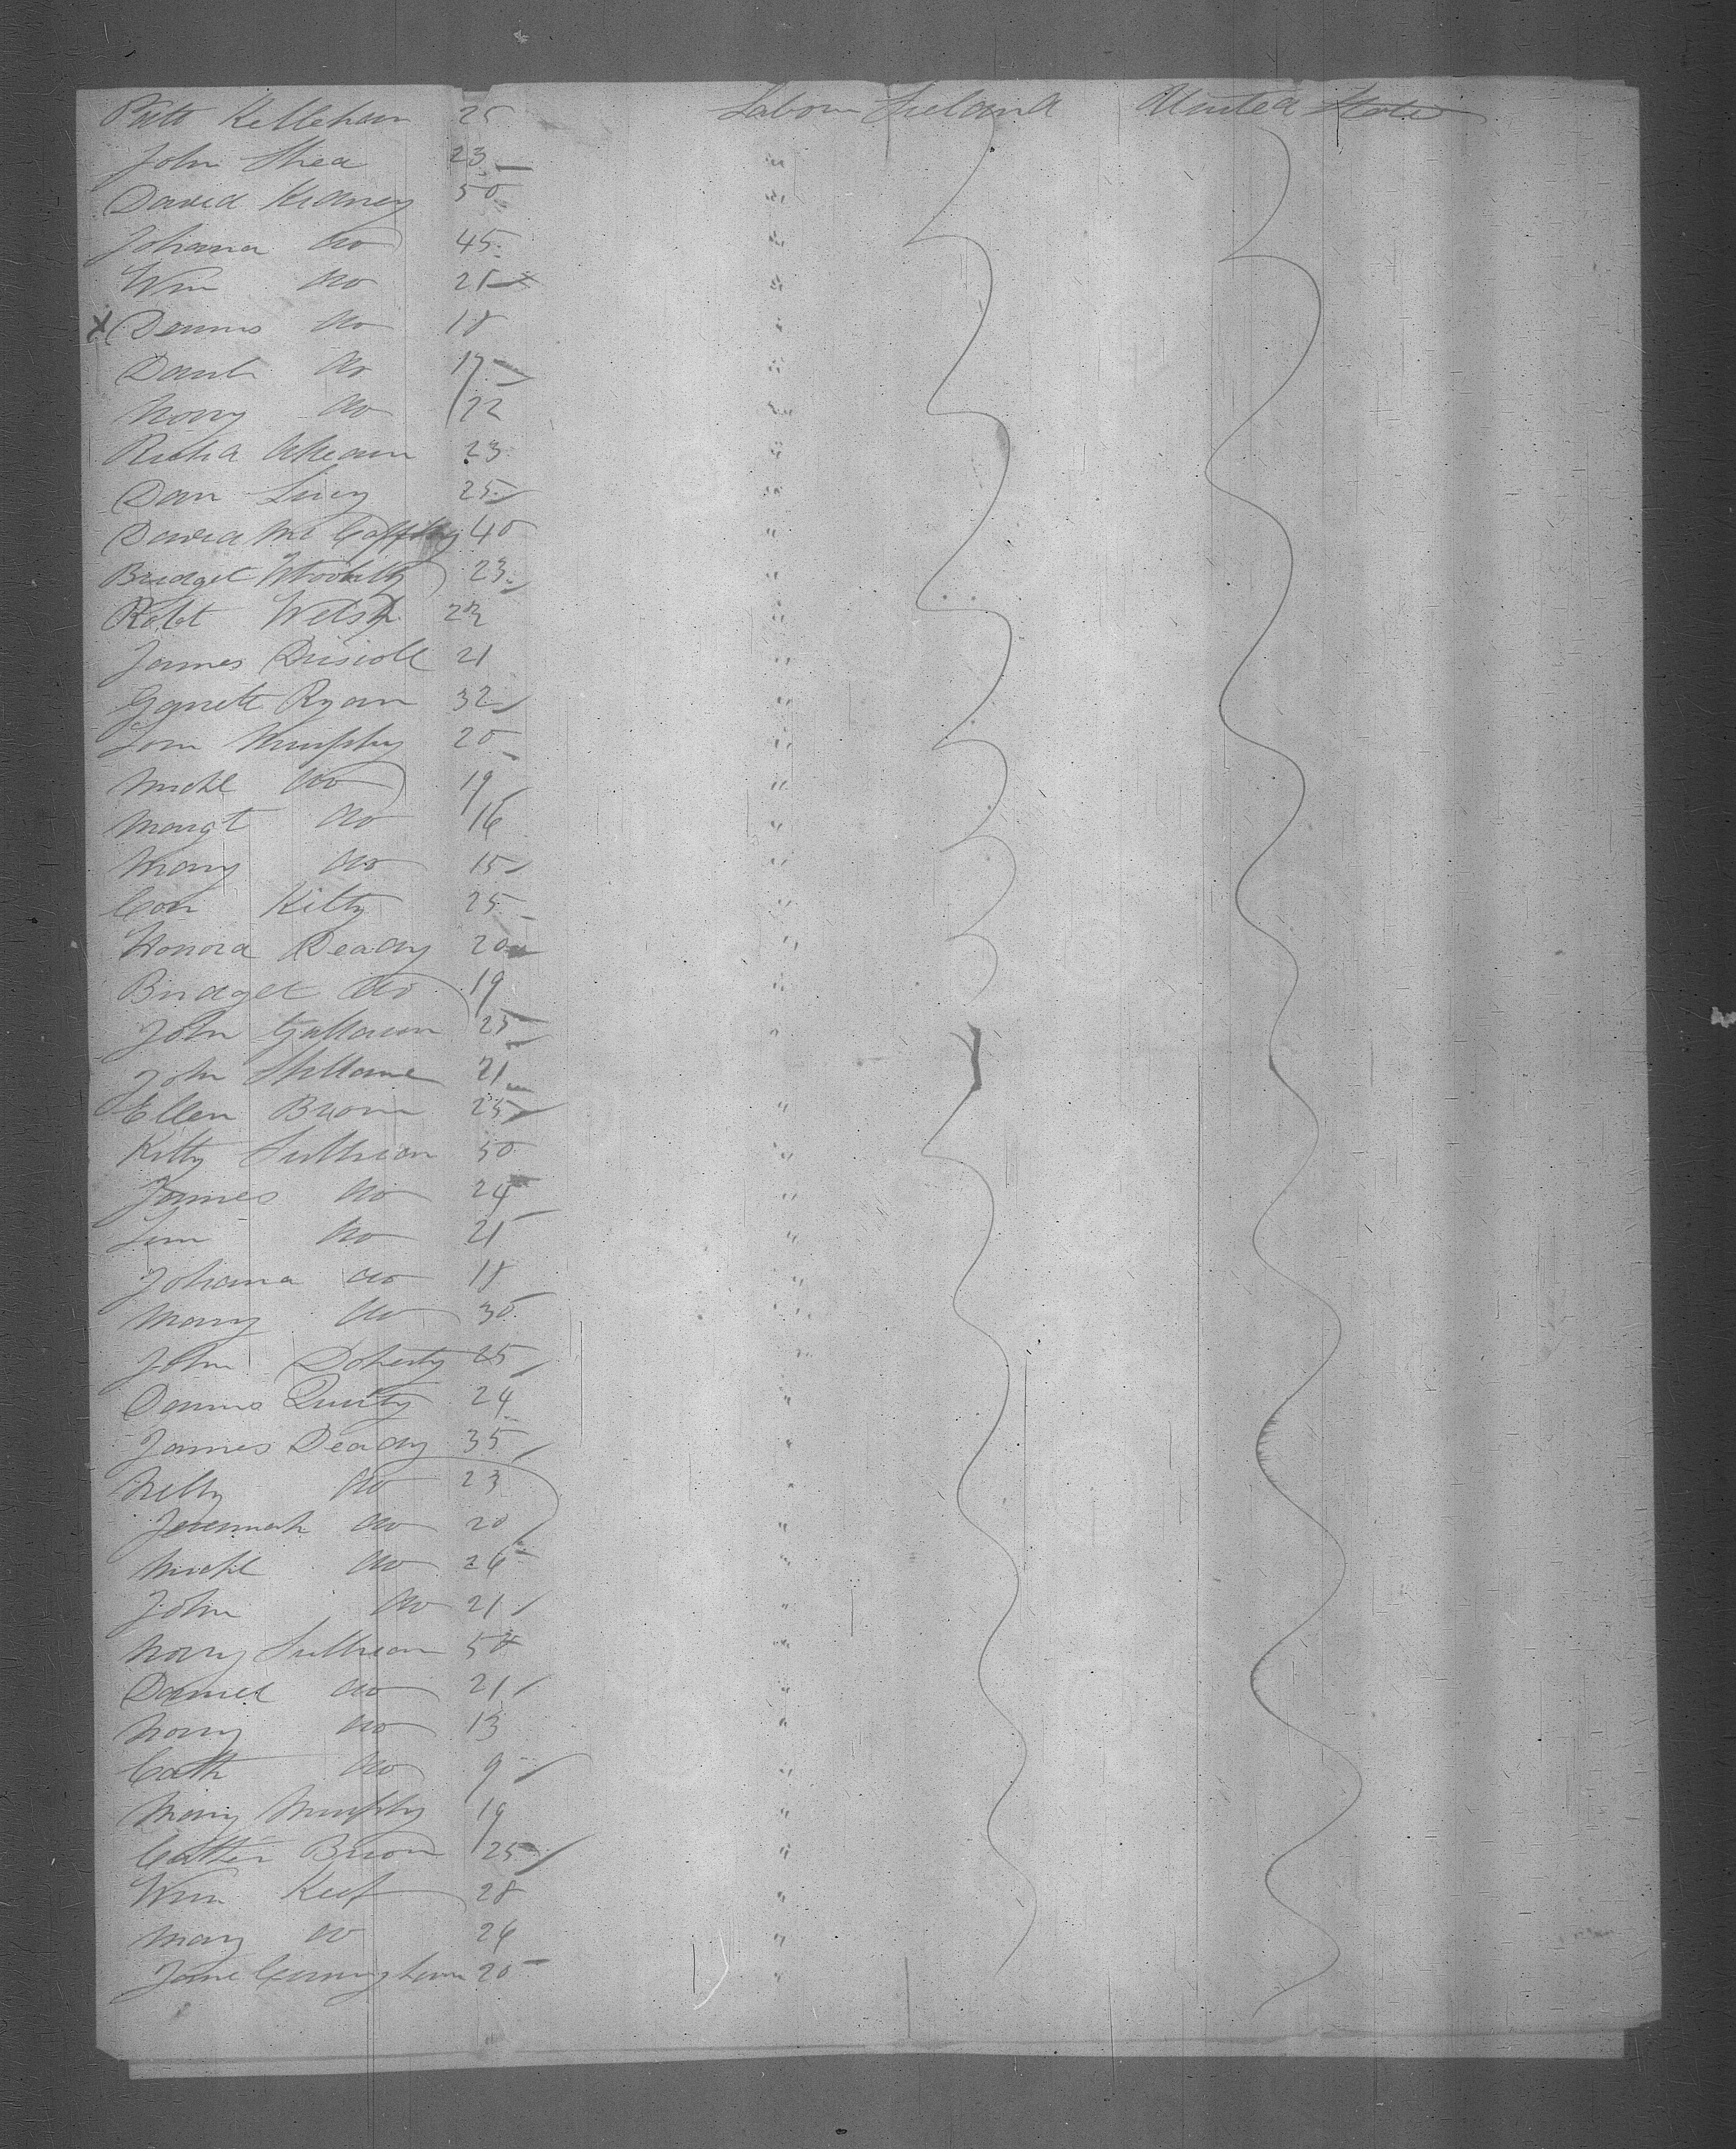 Patt Kelleham 25 Labour Ireland United States
John Shea 23 "
David Kidney 50 "
Johana do 45 "
Wm do 21 "
x Dennis do 18 "
Danl do 17 "
Nory do 22 "
Richd Ahearn 23 "
Dan Lucy 25 "
David Mc 40 "
Bridget 23 "
Robt Welsh 22 "
James Driscoll 21 "
Garrett Ryan 32 "
Tom Murphy 20 "
Michl do 19 "
Margt do 16 "
Mary do 15 "
Con Kilty 25 "
Honora Deady 20 "
Bridget do 19 "
John Gallavan 25 "
John Shillane 21
Ellen Brown 25 "
Kitty Sullivan 50 "
James do 24 "
Tim do 21 "
Johana do 18 "
Mary do 30 "
John Doherty 25 "
Dennis Quilty 24 "
James Deady 35 "
Nelly do 23 "
Jeremiah do 20 "
Michl do 26 "
John do 21 "
Nory Sullivan 50 "
Daniel do 21 "
Nory do 13 "
Cath do 9 "
Mary Murphy 19 "
Cathr Brion 25 "
Wm Keef 28 "
Mary do 26 "
Jane Cunningham 20 "